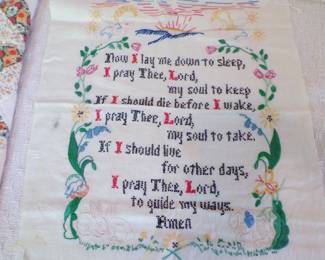 Now I lay me down to sleep,
I pray Thee, Lord,
my soul to keep
If I should die before I wake,
I pray Thee, Lord,
my soul to take.
If I should live
for other days,
I pray Thee, Lord,
to guide my ways.
Amen